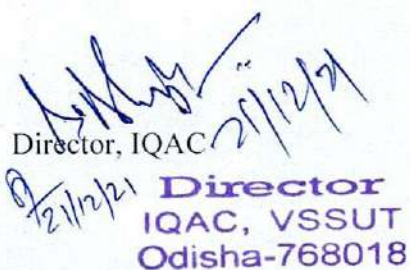 21/12/21
Director, IQAC
21/12/21
Director
IQAC, VSSUT
Odisha-768018